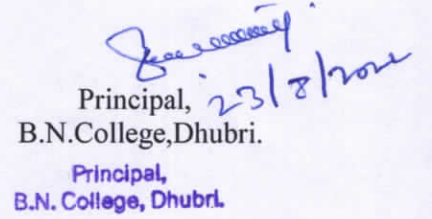 Principal, 23/8/
B.N.College,Dhubri.
Principal,
B.N. College, Dhubri.